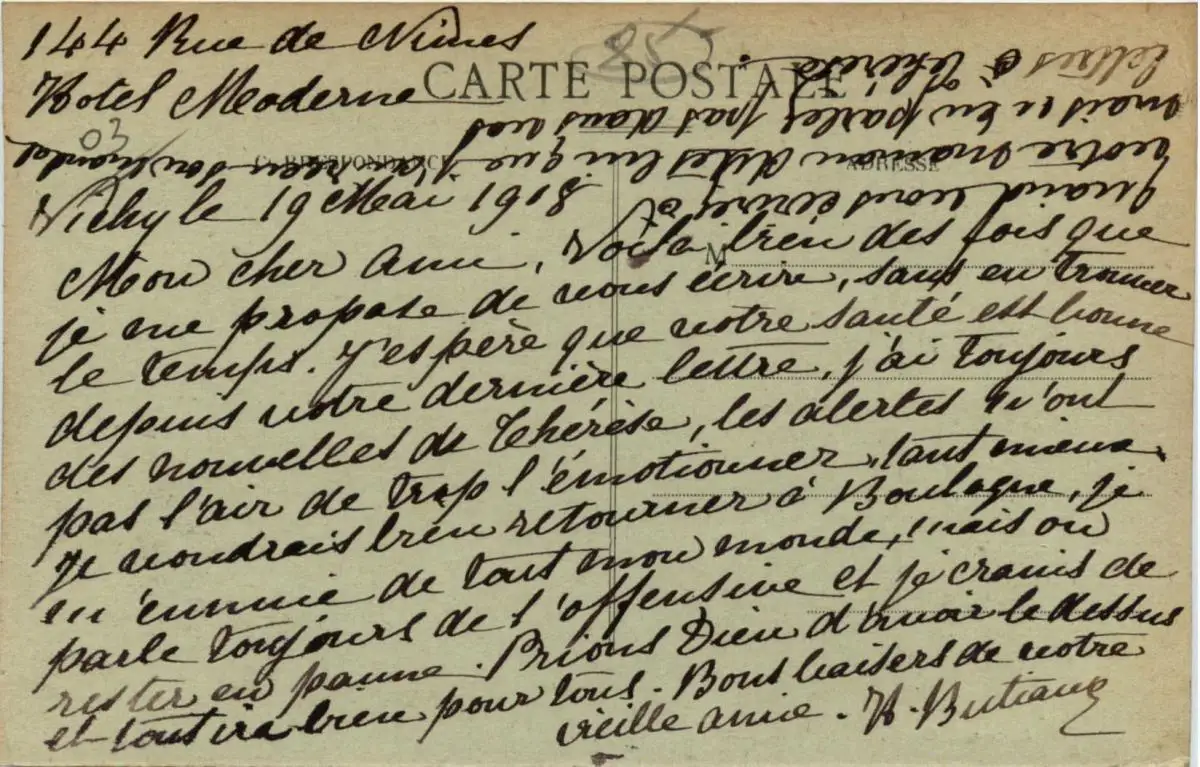 144 Rue de Nîmes
Hotel Moderne
85
CARTE POSTALE
03
CORRESPONDANCE
ADRESSE
M
Vichy le 19 Mai 1918
Mon cher Ami, Voilà bien des fois que
je me propose de vous écrire, sans en trouver
le temps. J'espère que votre santé est bonne
depuis votre dernière lettre, j'ai toujours
des nouvelles de Thérèse, les alertes n'ont
pas l'air de trop l'émotionner, tant mieux.
Je voudrais bien retourner à Boulogne, je
m'ennuie de tout mon monde, mais on
parle toujours de l'offensive et je crains de
rester en panne. Prions Dieu d'avoir le dessus
et tout ira bien pour tous. Bons baisers de votre
vieille amie. H. Butiaux
Quand vous écrirez à
votre maman dites lui que j'ai reçu son mandat
mais n'en parlez pas dans vos
lettres à Thérèse.